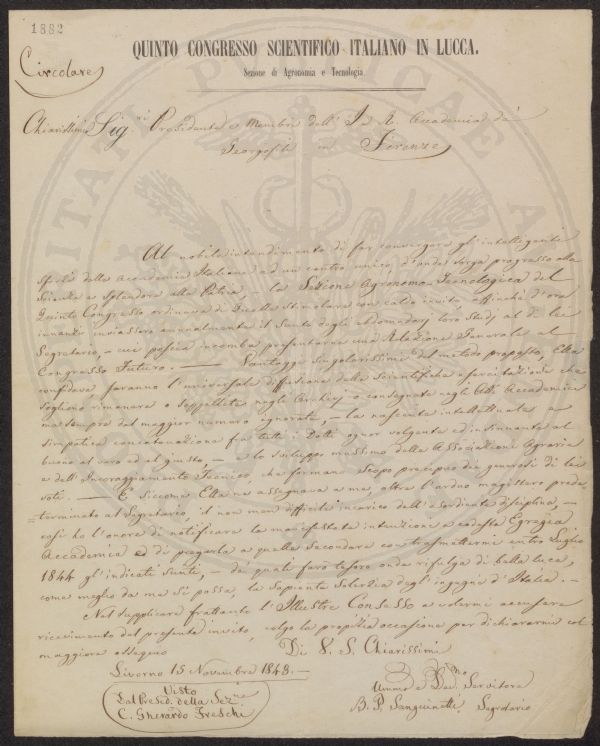 1882
QUINTO CONGRESSO SCIENTIFICO ITALIANO IN LUCCA.
Sezione di Agronomia e Tecnologia
Circolare
Chiarissimi Sig.ri Presidente e Membri dell' I. e R. Accademia de'
Georgofili in Firenze
Al nobile intendimento di far convergere gl'intelligenti
sforzi delle Accademie Italiane ad un centro unico, d'onde sorga progresso alla
Scienza e splendore alla Patria, la Sezione Agronomo-Tecnologica del
Quinto Congresso ordinava di stimolare con caldo invito, affinchè d'ora
innanzi inviassero annualmente il Sunto degli loro Studj al di lei
Segretario, cui poscia incomba presentarne una Relazione Generale al
Congresso Futuro. — Vantaggi singolarissimi del metodo proposto, Ella
confidava, saranno l'universale diffusione delle Scientifiche esercitazioni che
sogliono rimanere o seppellite negli Archivj o consegnate negli Atti Accademici
ma sempre dal maggior numero ignorate, — la nascente intellettuale e
simpatica concatenazione fra tutti i Dotti ognor volgente ed insinuante al
buono al vero ed al giusto, — e lo sviluppo massimo delle Associazioni Agrarie
e dell'Incoraggiamento Tecnico, che formano scopo precipuo dei generosi di lei
voti. — E siccome Ella ne assegnava a me, oltre l'arduo magistero prede-
=terminato al Segretario, il non men difficile incarico dell'esordiente disciplina, —
così ho l'onore di notificare la manifestata intenzione a codesta Egregia
Accademia ed di pregarla a quella secondare con trasmettermi entro Luglio
1844 gl'indicati Sunti, — de' quali farò tesoro onde rifulga di bella luce,
come meglio da me si possa, la sapiente solerzia degl'ingegni d'Italia. —
Nel supplicare frattanto l'Illustre Consesso a volermi accusare
ricevimento del presente invito, colgo la propizia occasione per dichiararmi col
maggiore ossequio
Di V. S. Chiarissimi
Livorno 15 Novembre 1843.
Visto
Dal Presid. della Sez.ne
C. Gherardo Freschi
Ummo e Dev. Servitore
B. P. Sanguinetti Segretario